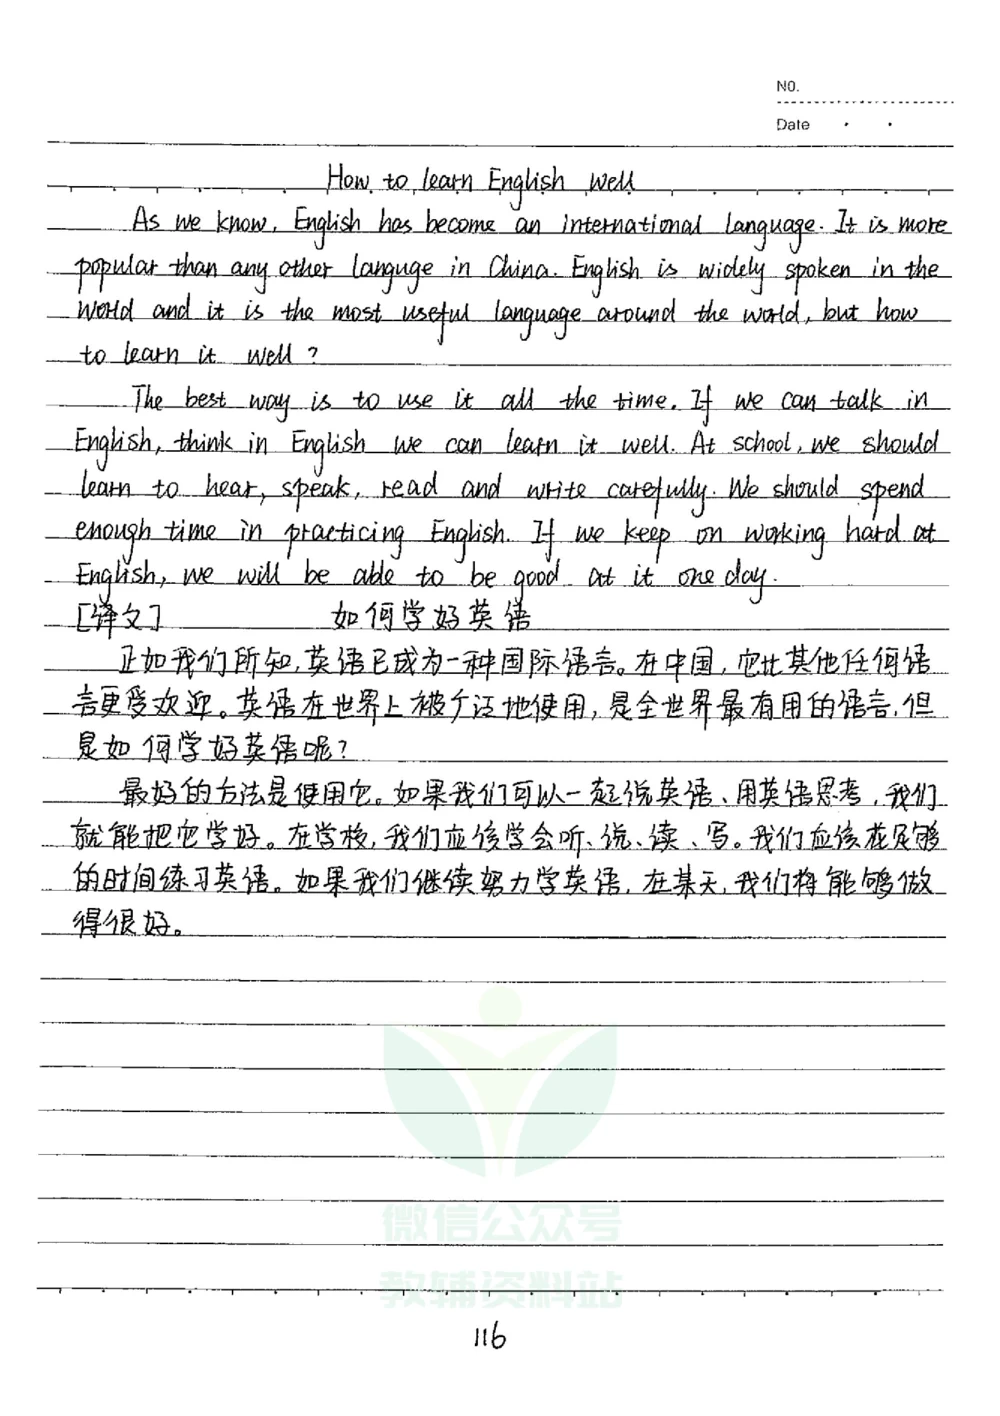 NO.
Date
How to learn English well
As we know, English has become an international language. It is more
popular than any other languge in China. English is widely spoken in the
world and it is the most useful language around the world, but how
to learn it well?
The best way is to use it all the time. If we can talk in
English, think in English we can learn it well. At school, we should
learn to hear, speak, read and write carefully. We should spend
enough time in practicing English. If we keep on working hard at
English, we will be able to be good at it one day.
[译文] 如何学好英语
正如我们所知,英语已成为一种国际语言。在中国,它比其他任何语
言更受欢迎。英语在世界上被广泛地使用,是全世界最有用的语言,但
是如何学好英语呢?
最好的方法是使用它。如果我们可以一起说英语、用英语思考,我们
就能把它学好。在学校,我们应该学会听、说、读、写。我们应该花足够
的时间练习英语。如果我们继续努力学英语,在某天,我们将能够做
得很好。
微信公众号
教辅资料站
116